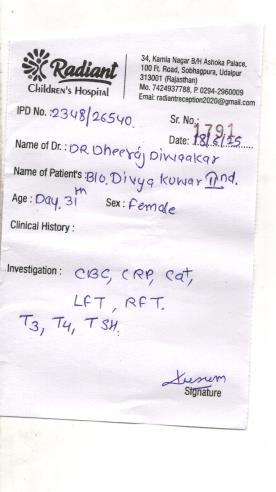 Radiant
Children's Hospital
34, Kamla Nagar B/H Ashoka Palace,
100 Ft. Road, Sobhagpura, Udaipur
313001 (Rajasthan)
Mo. 7424937788, P. 0294-2960009
Emai: radiantreception2020@gmail.com
IPD No. : 2348/26540.
Sr. No.: 1791
Date: 18/6/25
Name of Dr. : DR Dheeraj Diwaakar
Name of Patient's B/o. Divya Kuwar IInd.
Age : Day, 31th Sex : Female
Clinical History :
Investigation : CBC, CRP, Cat,
LFT, RFT.
T3, T4, TSH.
Signature